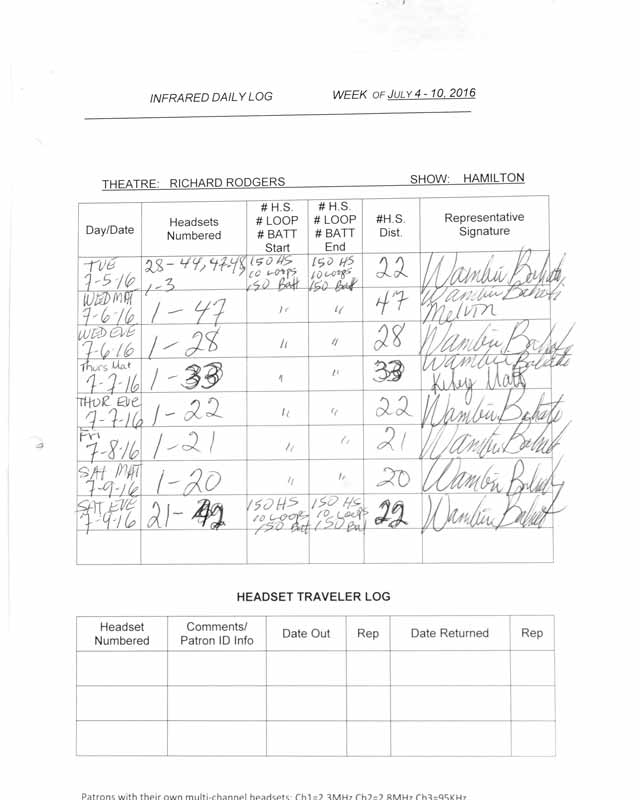 INFRARED DAILY LOG WEEK OF JULY 4 - 10, 2016
THEATRE: RICHARD RODGERS SHOW: HAMILTON
Day/Date Headsets Numbered # H.S. # LOOP # BATT Start # H.S. # LOOP # BATT End #H.S. Dist. Representative Signature
TUE 7-5-16 28-44, 47-48, 1-3 150 HS 10 Loops 150 Batt 150 HS 10 Loops 150 Batt 22 Wambui
WED MAT 7-6-16 1-47 " " 47 Wambui Melvin
WED EVE 7-6-16 1-28 " " 28 Wambui
Thurs Mat 7-7-16 1-33 " " 33 Wambui
THUR EVE 7-7-16 1-22 " " 22 Wambui
Fri 7-8-16 1-21 " " 21 Wambui
SAT MAT 7-9-16 1-20 " " 20 Wambui
SAT EVE 7-9-16 21-42 150 HS 10 Loops 150 Batt 150 HS 10 Loops 150 Bat 22 Wambui
HEADSET TRAVELER LOG
Headset Numbered Comments/ Patron ID Info Date Out Rep Date Returned Rep
Patrons with their own multi-channel headsets: Ch1=2.3MHz Ch2=2.8MHz Ch3=95KHz